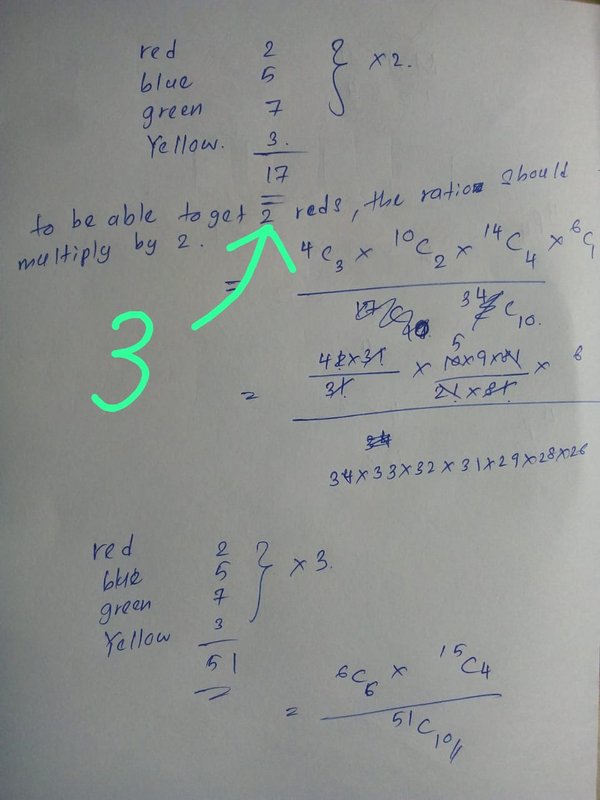 red 2
blue 5 } × 2.
green 7
Yellow. 3.
17
to be able to get 2 reds, the ratio should
multiply by 2.
3
= ⁴C₃ × ¹⁰C₂ × ¹⁴C₄ × ⁶C₁
³⁴C₁₀.
= 4 × 3! × 10 × 9 × 8! × 6
3! 2! × 8!
5
34 × 33 × 32 × 31 × 29 × 28 × 26
red 2
blue 5 } × 3.
green 7
Yellow 3
51
= ⁶C₆ × ¹⁵C₄
⁵¹C₁₀//